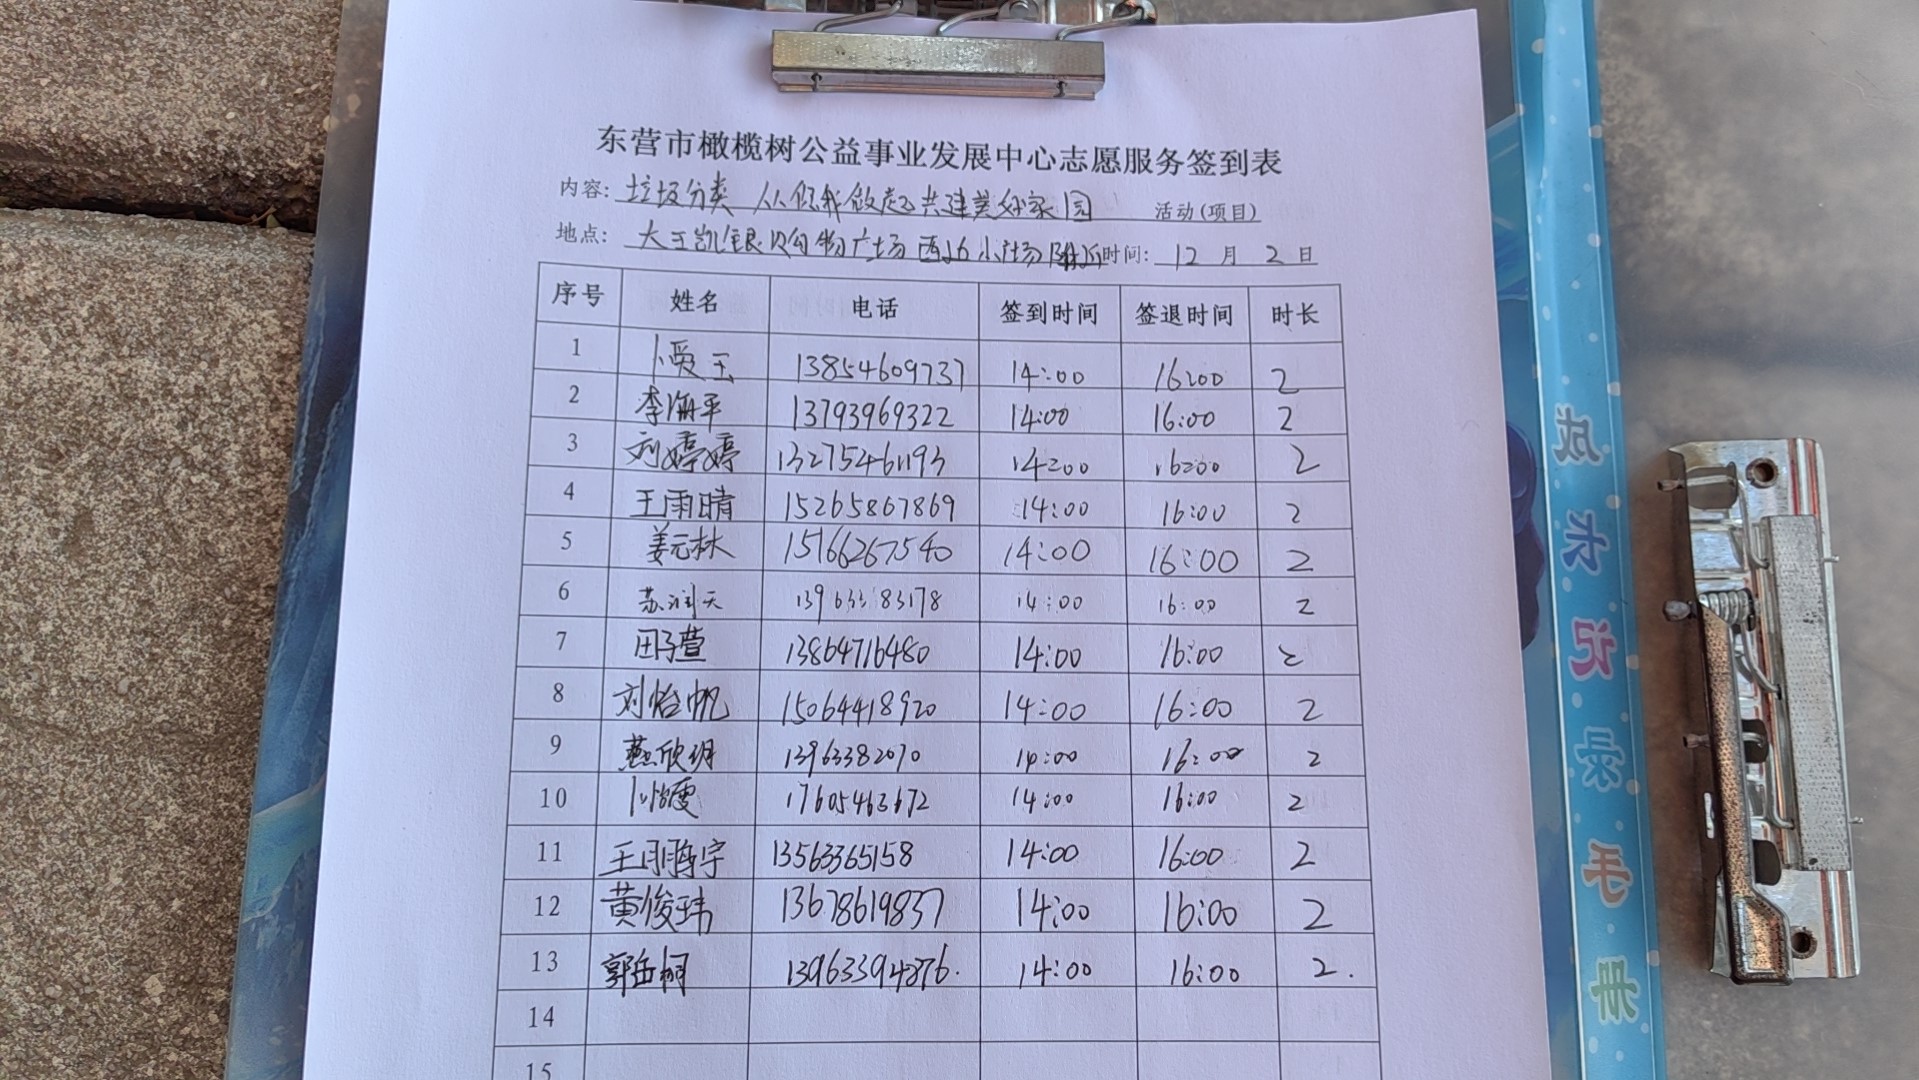 东营市橄榄树公益事业发展中心志愿服务签到表
内容: 垃圾分类 从你我做起 共建美好家园 活动(项目)
地点: 大王凯银购物广场西北小广场附近 时间: 12 月 2 日
序号 姓名 电话 签到时间 签退时间 时长
1 卜爱玉 13854609737 14:00 16:00 2
2 李海平 13793969322 14:00 16:00 2
3 刘婷婷 13275461193 14:00 16:00 2
4 王雨晴 15265867869 14:00 16:00 2
5 姜元林 15166267540 14:00 16:00 2
6 苏润天 13963383178 14:00 16:00 2
7 田子萱 13864716480 14:00 16:00 2
8 刘怡帆 15064418920 14:00 16:00 2
9 燕欣玥 13963382070 14:00 16:00 2
10 17605463672 14:00 16:00 2
11 13563365158 14:00 16:00 2
12 黄俊玮 13678619837 14:00 16:00 2
13 郭岳桐 13963394876. 14:00 16:00 2.
14
15
成长记录手册